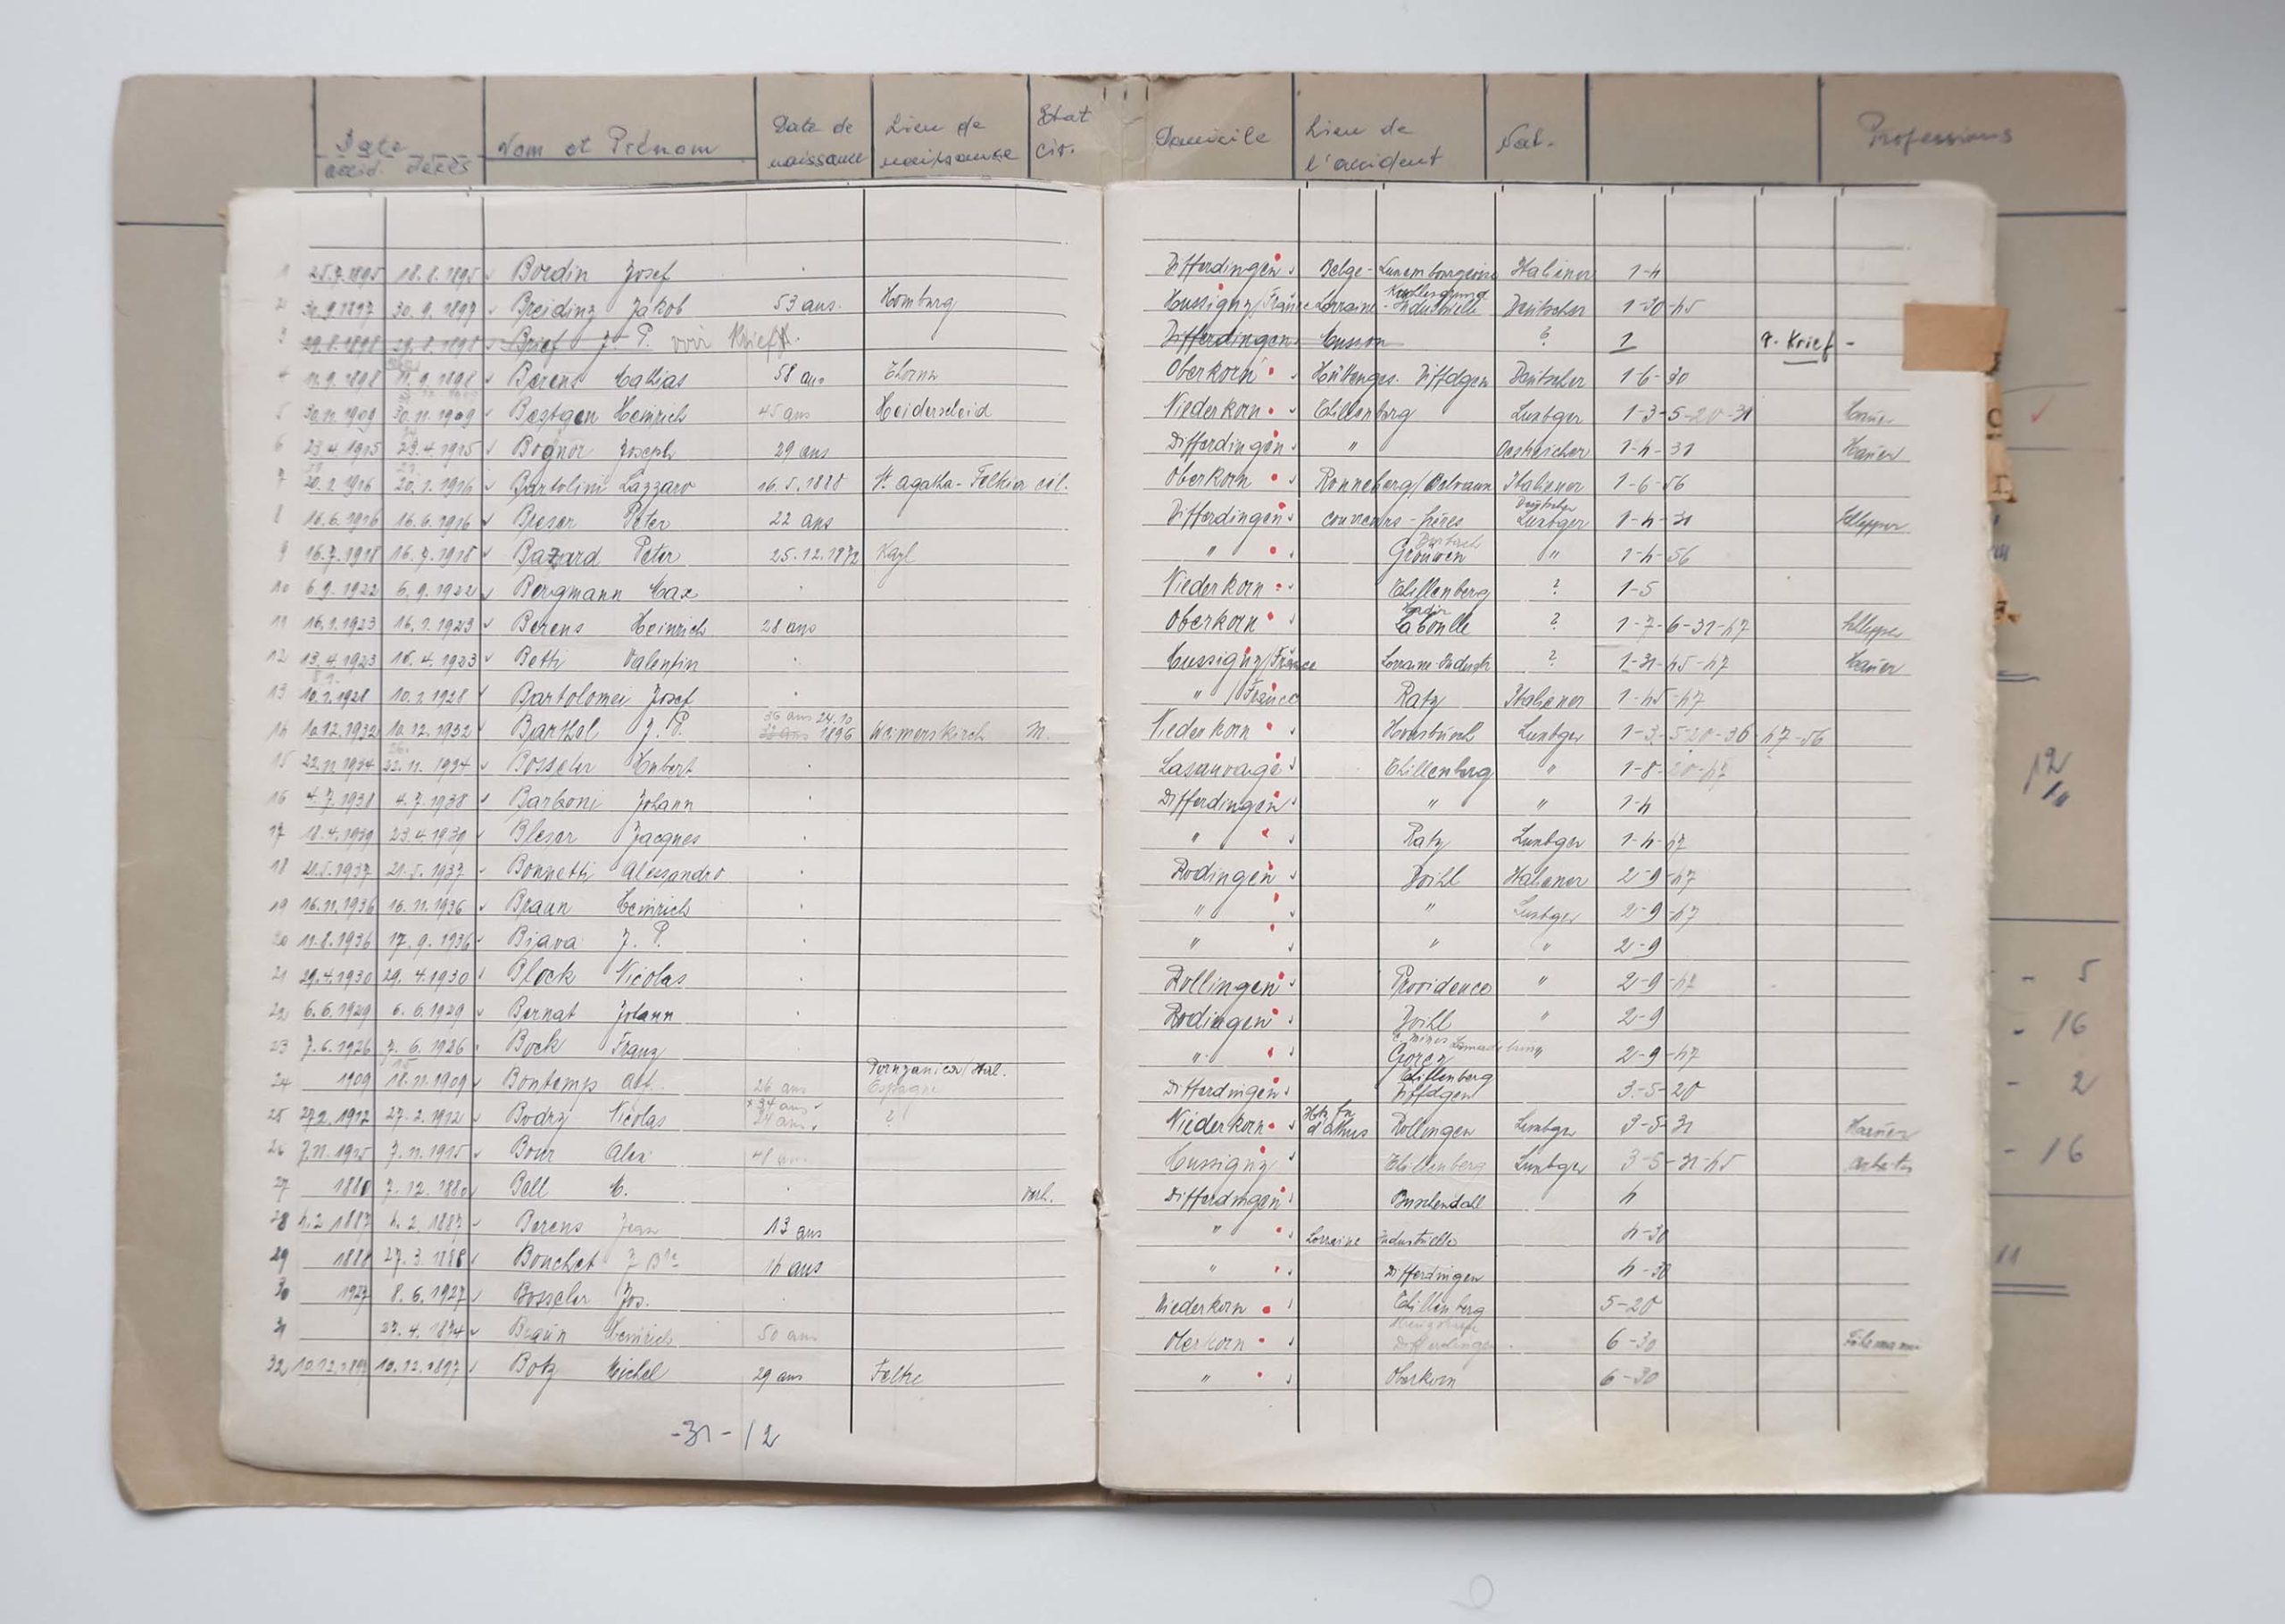 Date Nom et Prénom Date de Lieu de Etat Domicile Lieu de Nat. Professions
accid. décès naissance naissance civ. l'accident
1 25.7.1895 18.8.1895 Bordin Josef Differdingen Belge-Luxembourgeoise Italiener 1-4
2 30.9.1897 30.9.1897 Breiding Jakob 53 ans. Homburg Hussigny/France Lorraine-Industrielle Deutscher 1-30-45
3 29.8.1898 29.8.1898 Brief J. P. voir Krieff. Differdingen Husson ? 1 ?. Krief -
4 11.9.1898 11.9.1898 Berens Mathias 58 ans Oberkorn Hüttenges. Diffdgen Deutscher 1-6-30
5 30.11.1909 30.11.1909 Bestgen Heinrich 45 ans Heiderscheid Niederkorn Thillenberg Luxbger 1-3-5-20-31 Hauer
6 23.4.1915 23.4.1915 Bognor Joseph 29 ans Differdingen " Oestreicher 1-4-31 Hauer
7 20.1.1916 20.1.1916 Bartolini Lazzaro 16.5.1888 St. agatha-Feltria cél. Oberkorn Ronneberg/ Italiener 1-6-56
8 16.6.1916 16.6.1916 Bieser Peter 22 ans Differdingen couvreurs-frères Deutscher Luxbger 1-4-31 Schlepper
9 16.7.1918 16.7.1918 Bazard Peter 25.12.1872 Kayl " Grouwen " 1-4-56
10 6.9.1922 6.9.1922 Bergmann Max Niederkorn Thillenberg ? 1-5
11 16.1.1923 16.1.1923 Berens Heinrich 28 ans Oberkorn Laboulle ? 1-7-6-31-47 Schlepper
12 13.4.1923 16.4.1923 Betti Valentin Hussigny/France Lorraine-Industr ? 1-31-45-47 Hauer
13 10.1.1928 10.1.1928 Bartolomei Josef " /France Ratz Italiener 1-45-47
14 10.12.1932 10.12.1932 Barthel J. P. 36 ans 24.10. 1896 Weimerskirch M. Niederkorn Luxbger 1-3-5-20-36-47-56
15 22.11.1934 22.11.1934 Bosseler Hubert Lasauvage Thillenberg " 1-8-20-47
16 4.7.1938 4.7.1938 Barboni Johann Differdingen " " 1-4
17 18.4.1939 23.4.1939 Bleser Jacques " Ratz Luxbger 1-4-47
18 21.5.1937 21.5.1937 Bonnetti Alessandro Rodingen Doihl Italiener 2-9-47
19 16.11.1936 16.11.1936 Braun Heinrich " " Luxbger 2-9-47
20 11.8.1936 17.9.1936 Biava J. P. " " " 2-9
21 29.4.1930 29.4.1930 Block Nicolas Rollingen Providence " 2-9-47
22 6.6.1929 6.6.1929 Bernat Johann Rodingen Doihl " 2-9
23 7.6.1926 7.6.1926 Bock Franz " Gorcy " 2-9-47
24 1909 18.11.1909 Bontemps Alf. 26 ans Espagne Differdingen Thillenberg Diffdgen 3-5-20
25 27.2.1912 27.2.1912 Bodry Nicolas 34 ans ? Niederkorn d'Athus Rollingen Luxbger 3-5-31 Hauer
26 7.11.1915 7.11.1915 Bour Alex 48 ans Hussigny Thillenberg Luxbger 3-5-31-45 Arbeiter
27 1880 7.12.1880 Bell M. verh. Differdingen Buschendall 4
28 4.2.1887 4.2.1887 Berens Jean 13 ans " Lorraine Industrielle 4-30
29 1888 27.3.1888 Bouchet J Bte 14 ans " Differdingen 4-30
30 1927 8.6.1927 Bosseler Jos. Niederkorn Thillenberg 5-20
31 27.4.1874 Braun Heinrich 50 ans Oberkorn Differdingen 6-30
32 10.12.1897 10.12.1897 Botz Michel 29 ans Feltre " Oberkorn 6-30
-31-/2
- 5
- 16
- 2
- 16
11